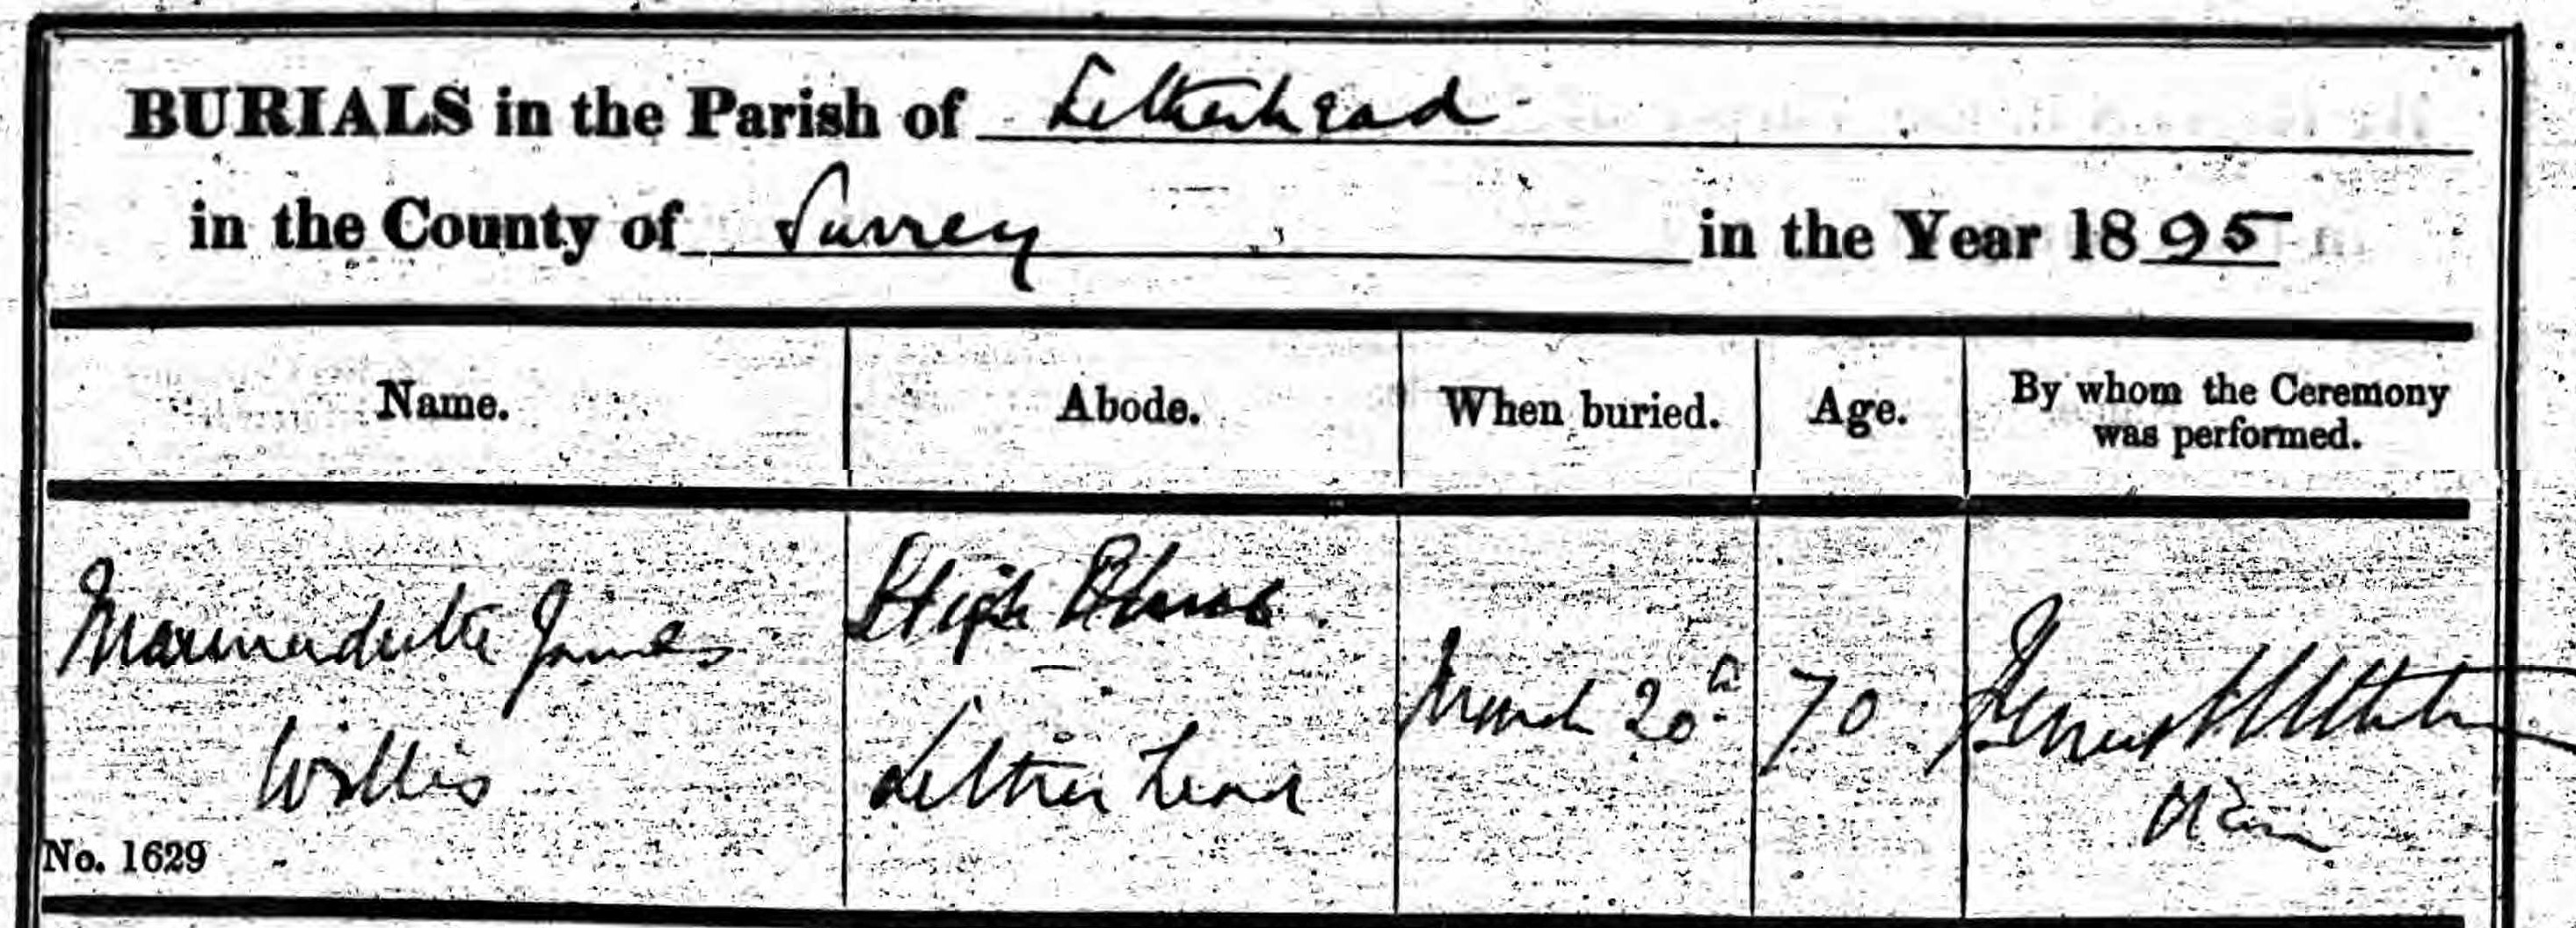 BURIALS in the Parish of Letherhead
in the County of Surrey in the Year 1895
Name. Abode. When buried. Age. By whom the Ceremony
was performed.
Marmaduke James
Willis
High
Letherhead
March 20th
70
No. 1629